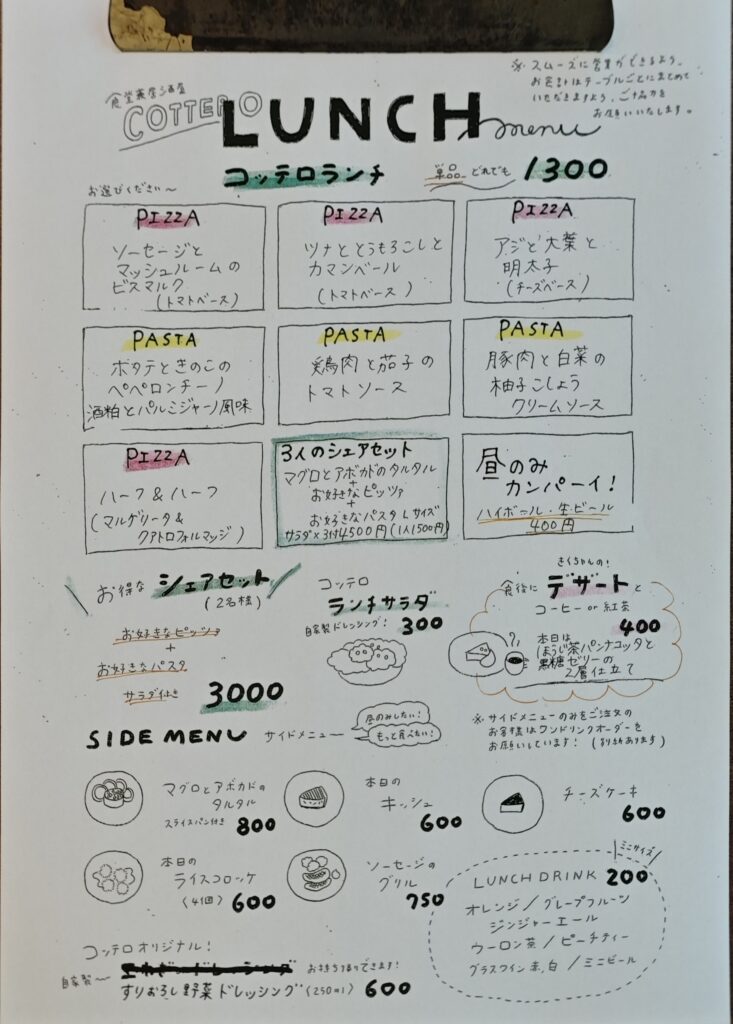 食堂兼居酒屋
COTTERO
LUNCH menu
※スムーズに営業ができるよう、
お会計はテーブルごとにまとめて
いただきますよう、ご協力を
お願いいたします。
コッテロランチ
単品どれでも 1300
お選びください〜
PIZZA
ソーセージと
マッシュルームの
ビスマルク
(トマトベース)
PIZZA
ツナととうもろこしと
カマンベール
(トマトベース)
PIZZA
アジと大葉と
明太子
(チーズベース)
PASTA
ホタテときのこの
ペペロンチーノ
酒粕とパルミジャーノ風味
PASTA
鶏肉と茄子の
トマトソース
PASTA
豚肉と白菜の
柚子こしょう
クリームソース
PIZZA
ハーフ&ハーフ
(マルゲリータ&
クアトロフォルマッジ)
3人のシェアセット
マグロとアボカドのタルタル
+
お好きなピッツァ
+
お好きなパスタLサイズ
サラダ×3付4500円(1人1500円)
昼のみ
カンパーイ!
ハイボール・生ビール
400円
お得な シェアセット
(2名様)
お好きなピッツァ
+
お好きなパスタ
サラダ付き
3000
コッテロ
ランチサラダ
自家製ドレッシング! 300
きくちゃんの!
食後に デザート と
コーヒー or 紅茶
400
本日は
ほうじ茶パンナコッタと
黒糖ゼリーの
2層仕立て
SIDE MENU サイドメニュー
昼のみしたい!
もっと食べたい!
※サイドメニューのみをご注文の
お客様はワンドリンクオーダーを
お願いしています!
マグロとアボカドの
タルタル
スライスパン付き 800
本日の
キッシュ
600
チーズケーキ
600
本日の
ライスコロッケ
(4個) 600
ソーセージの
グリル
750
ミニサイズ
LUNCH DRINK 200
オレンジ/グレープフルーツ
ジンジャーエール
ウーロン茶/ピーチティー
グラスワイン赤,白/ミニビール
コッテロオリジナル!
自家製〜
お持ち帰りできます!
すりおろし野菜ドレッシング(250ml) 600